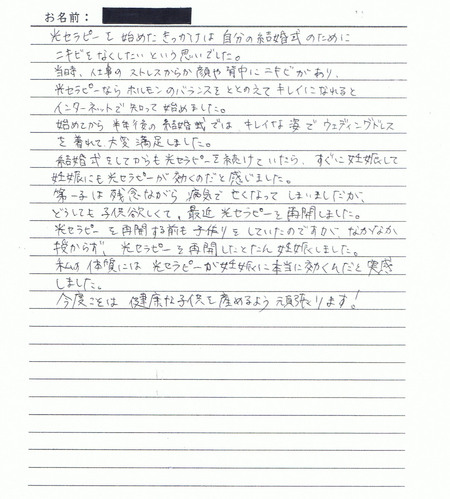 お名前：
光セラピーを始めたきっかけは自分の結婚式のために
ニキビをなくしたいという思いでした。
当時、仕事のストレスからか顔や背中にニキビがあり、
光セラピーならホルモンのバランスをととのえてキレイになれると
インターネットで知って始めました。
始めてから半年後の結婚式では、キレイな姿でウェディングドレス
を着れて大変満足しました。
結婚式をしてからも光セラピーを続けていたら、すぐに妊娠して
妊娠にも光セラピーが効くのだと感じました。
第一子は残念ながら病気で亡くなってしまいましたが、
どうしても子供欲しくて、最近光セラピーを再開しました。
光セラピーを再開する前も子作りをしていたのですが、なかなか
授からず、光セラピーを再開したとたん妊娠しました。
私の体質には光セラピーが妊娠に本当に効くんだと実感
しました。
今度こそは健康な子供を産めるよう頑張ります！